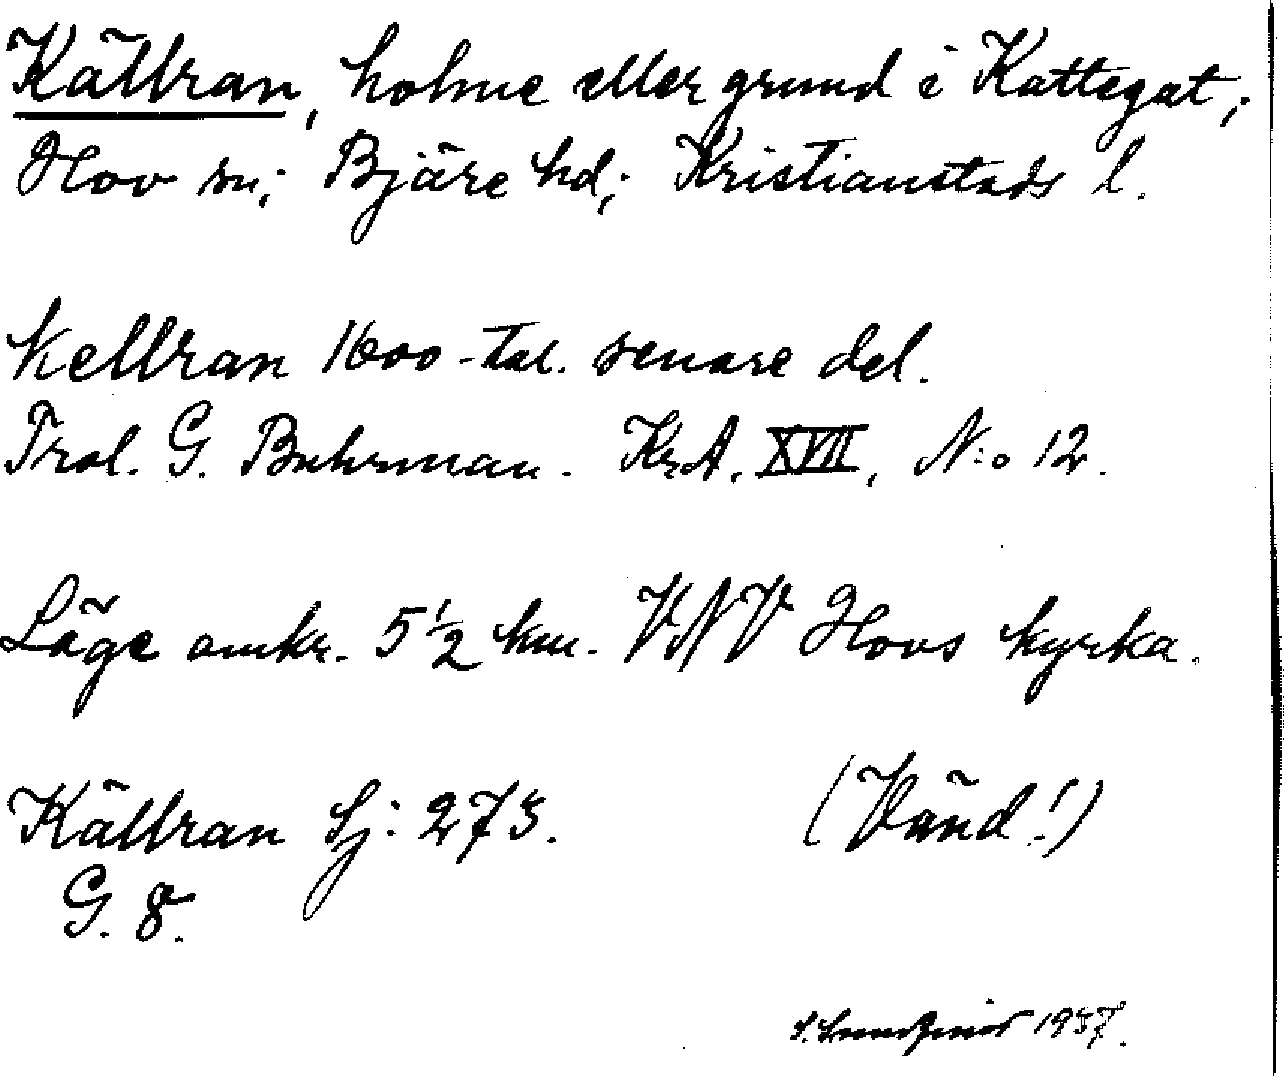 Källran, holme eller grund i Kattegat;
Hov sn; Bjäre hd; Kristianstads l.
Kellran 1600-tal. senare del.
Trol. G. Buhrman. Kr.A. XVII, N:o 12.
Läge omkr. 5 1/2 km. VNV Hovs kyrka.
Källran Sj: 273. (Vänd!)
G. 8.
1937.